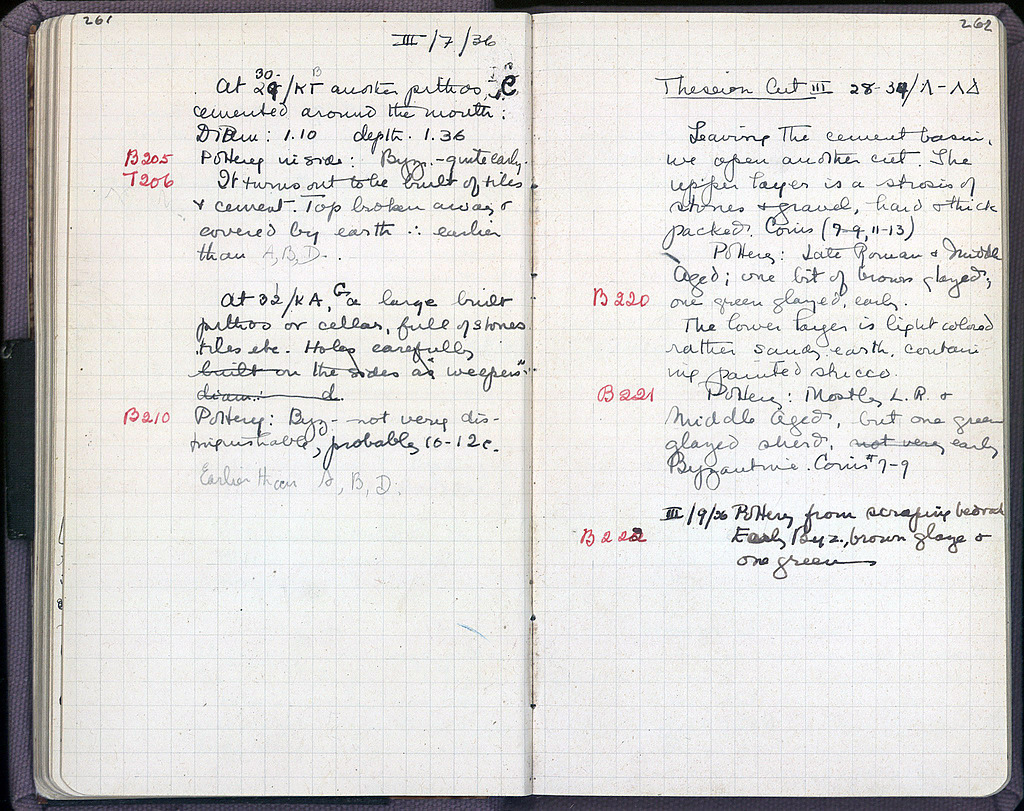 261
III/7/36
At 30/ΚΓ another pithos, C
cemented around the mouth:
Diam: 1.10 depth. 1.36
B205 Pottery inside: Byz. - quite early.
T206 It turns out to be built of tiles
& cement. Top broken away &
covered by earth ∴ earlier
than A, B, D.
At 32/ΚΑ, G a large built
pithos or cellar, full of stones,
tiles etc. Holes carefully
built on the sides as "weepers".
diam: d.
B210 Pottery: Byz - not very dis-
tinguishable, probably 10-12c.
Earlier than A, B, D.
262
Theseion Cut III 28-34/Λ-ΛΔ
Leaving the cement basin,
we open another cut. The
upper layer is a strosis of
stones & gravel, hard & thick
packed. Coins (7-9, 11-13)
Pottery: Late Roman & Middle
Aged; one bit of brown glazed;
B220 one green glazed, early.
The lower layer is light colored
rather sandy earth, contain
ing painted stucco.
B221 Pottery: Mostly L.R. &
Middle Aged, but one green
glazed sherd, not very early
Byzantine. Coins # 7-9
III/9/36 Pottery from scraping bedrock
B222 Early Byz., brown glaze &
one green